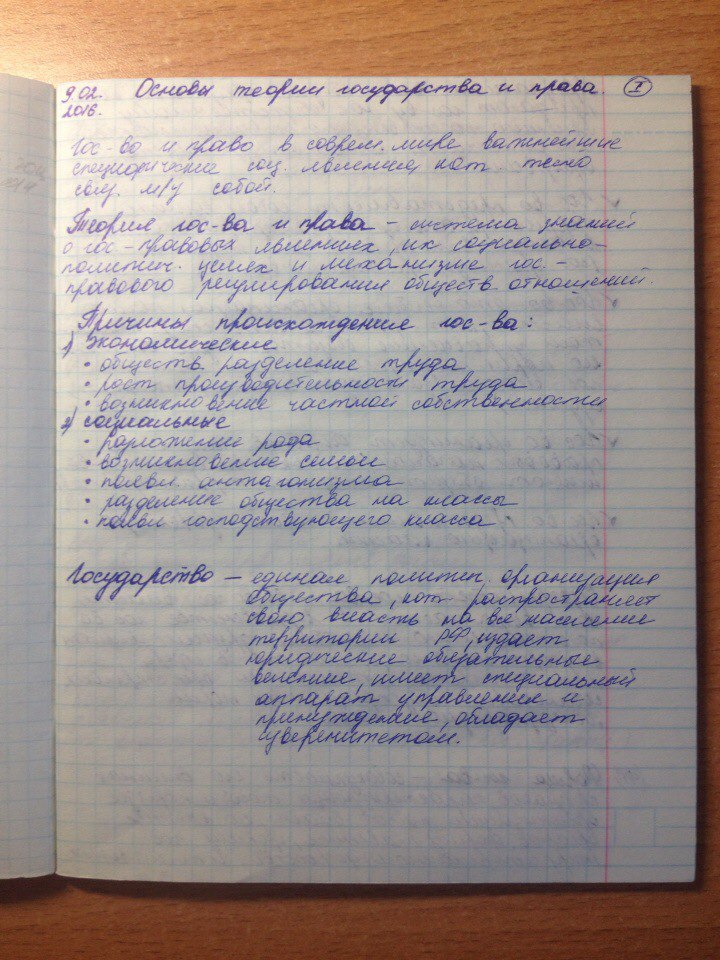 9.02. Основы теории государства и права. I
2016.
Гос-во и право в соврем. мире важнейшие
специфические соц. явления, кот. тесно
связ. м/у собой.
Теория гос-ва и права – система знаний
о гос-правовых явлениях, их социально-
политич. целях и механизме гос.-
правового регулирования обществ. отношений.
Причины происхождения гос-ва:
1) экономические
• обществ. разделение труда
• рост производительности труда
• возникновение частной собственности
2) социальные
• разложение рода
• возникновение семьи
• появл. антагонизма
• разделение общества на классы
• появл господствующего класса
Государство – единая политич. организация
общества, кот распространяет
свою власть на все население
территории РФ, издает
юридические обязательные
веления, имеет специальный
аппарат управления и
принуждения, обладает
суверенитетом.